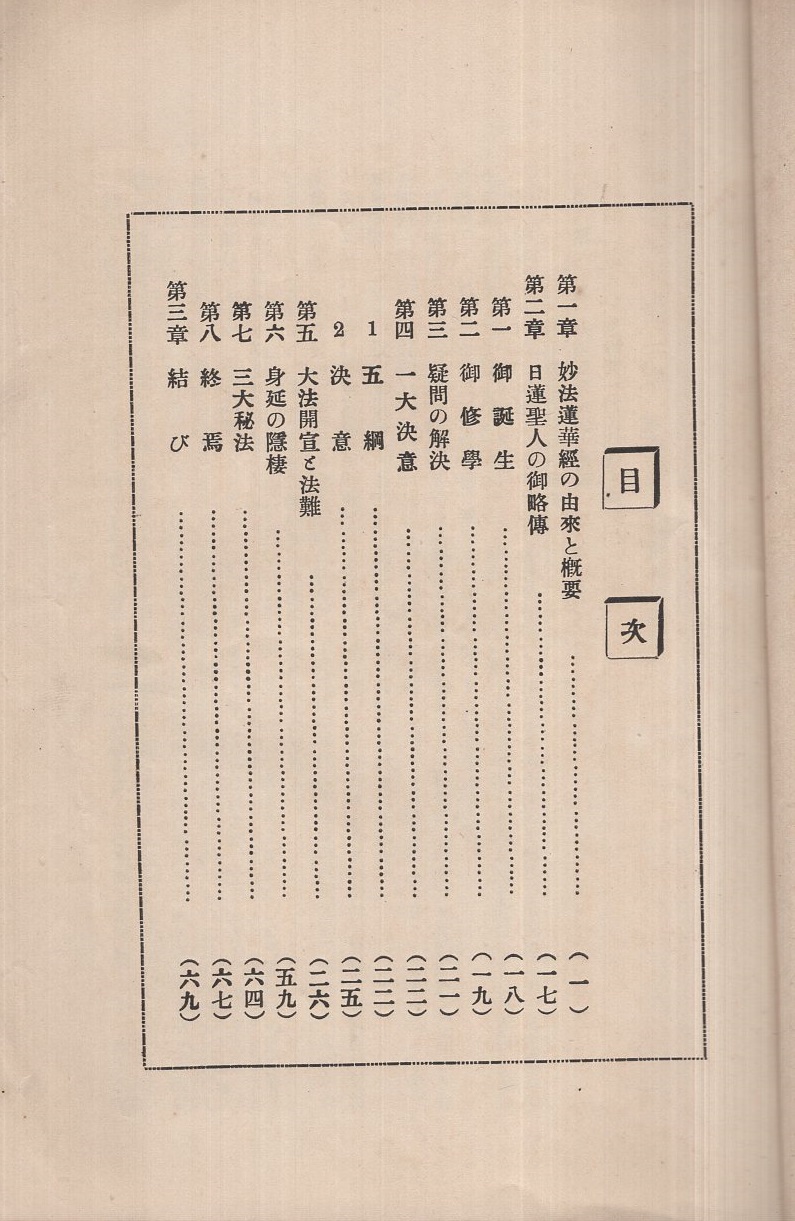 目次
第一章 妙法蓮華經の由來と概要………(一)
第二章 日蓮聖人の御略傳………(一七)
第一 御誕生………(一八)
第二 御修學………(一九)
第三 疑問の解決………(二一)
第四 一大決意………(二二)
1 五綱………(二二)
2 決意………(二五)
第五 大法開宣と法難………(二六)
第六 身延の隱棲………(五九)
第七 三大秘法………(六四)
第八 終焉………(六七)
第三章 結び………(六九)